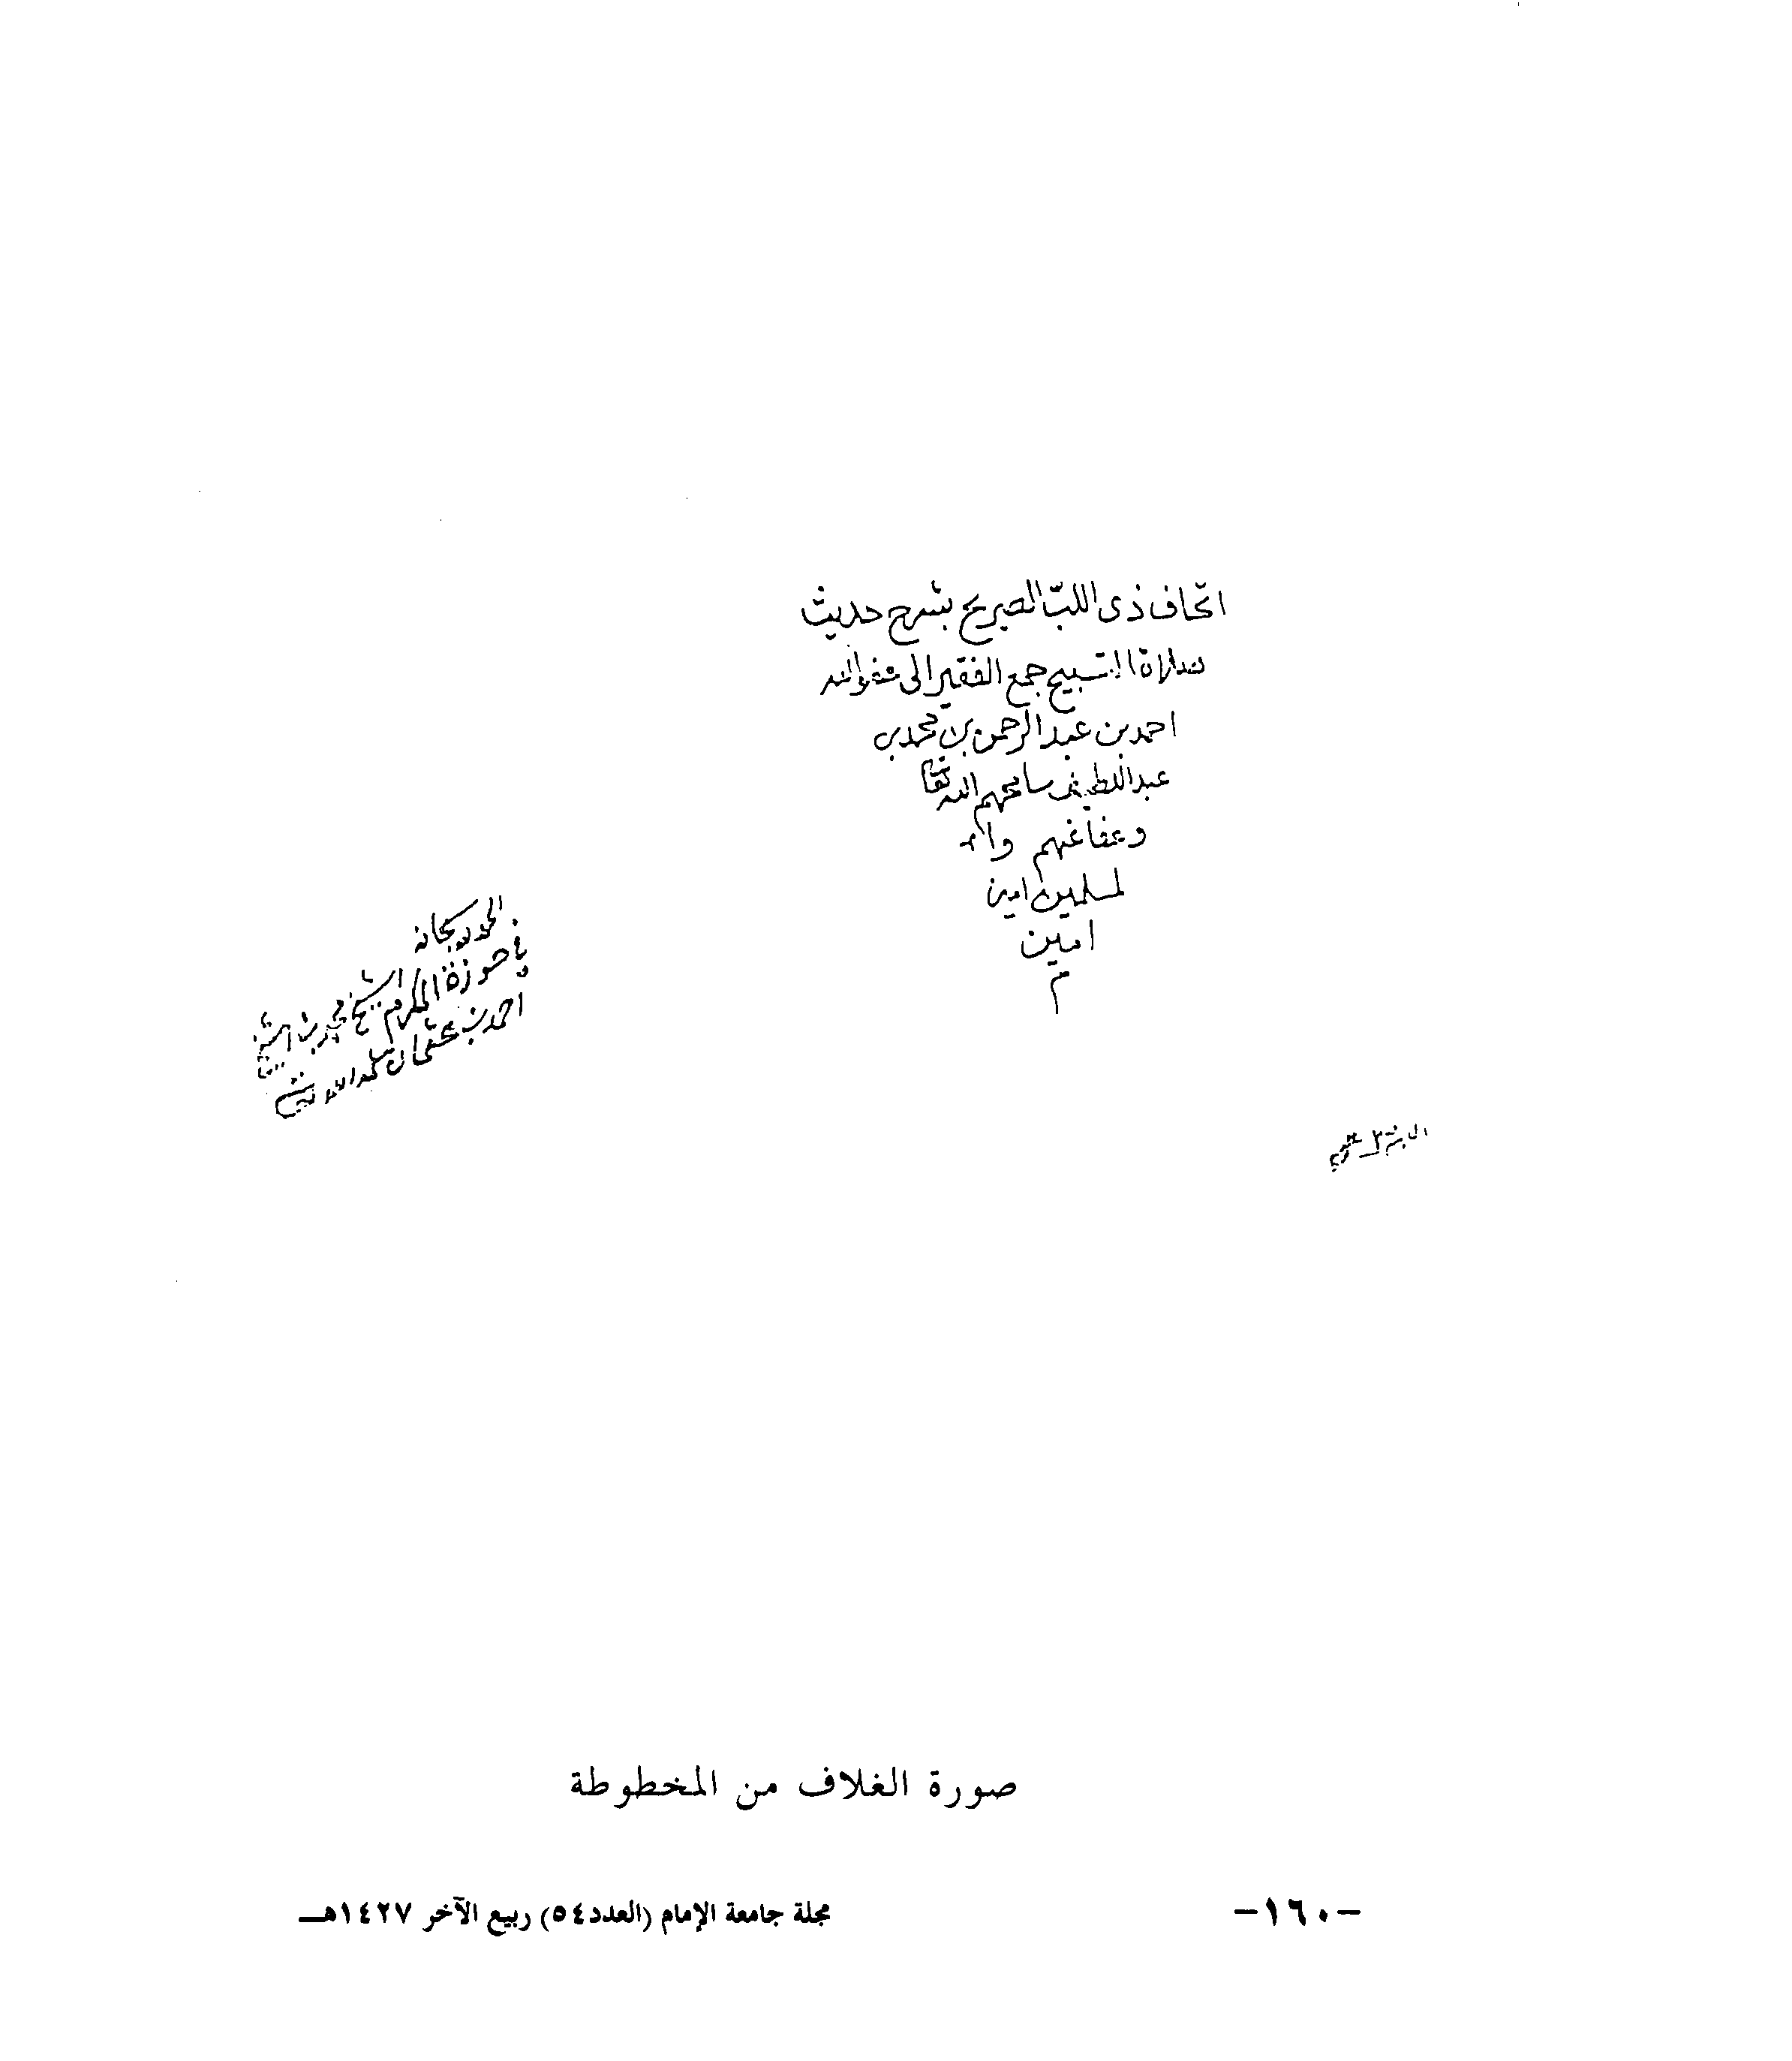 اتحاف ذى اللبّ الصريح بشرح حديث
صلاة التسبيح جمع الفقير الى عفو الله
احمد بن عبد الرحمن بن محمد بن
عبد اللطيف سامحهم الله تعا
وعفا عنهم وا
لمسلمين امين
امين
م
الحمد لله سبحانه
في حوزة المكرم الشيخ محمد بن الشيخ
احمد بن عثمان سلمه الله
صورة الغلاف من المخطوطة
-١٦٠-
مجلة جامعة الإمام (العدد٥٤) ربيع الآخر ١٤٢٧هـ